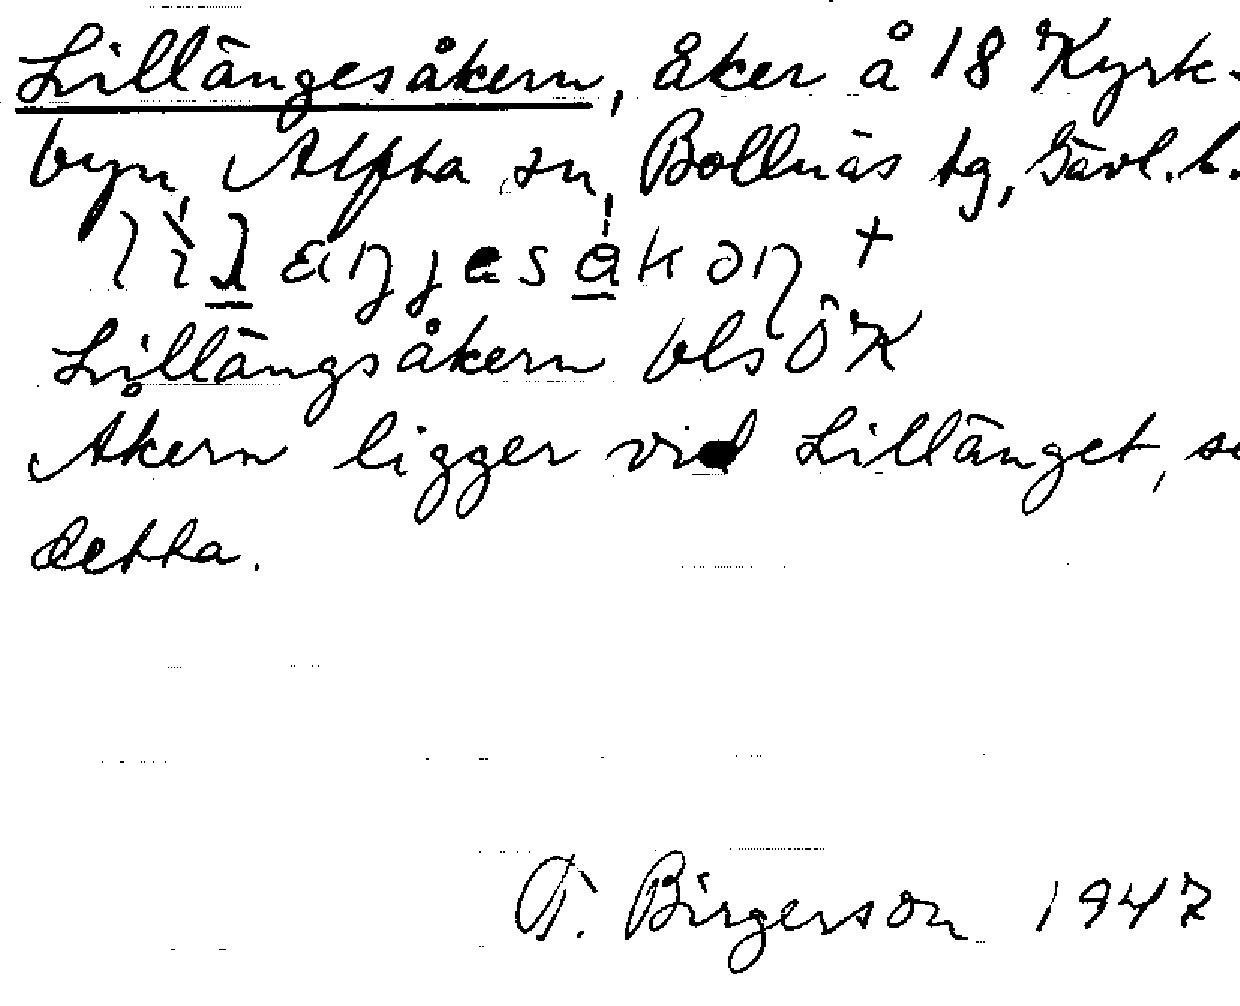 Lillängesåkern, åker å 18 Kyrk-
byn, Alfta sn, Bollnäs tg, Gävl. l.
Lillängsåkern bls ÖK
Åkern ligger vid Lillänget, se
detta.
T. Birgerson 1947